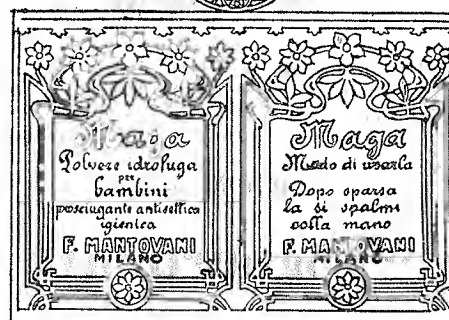 Maga
Polvere idrofuga
per
bambini
prosciugante antisettica
igienica
F. MANTOVANI
MILANO
Maga
Modo di usarla
Dopo sparsa
la si spalmi
colla mano
F. MANTOVANI
MILANO